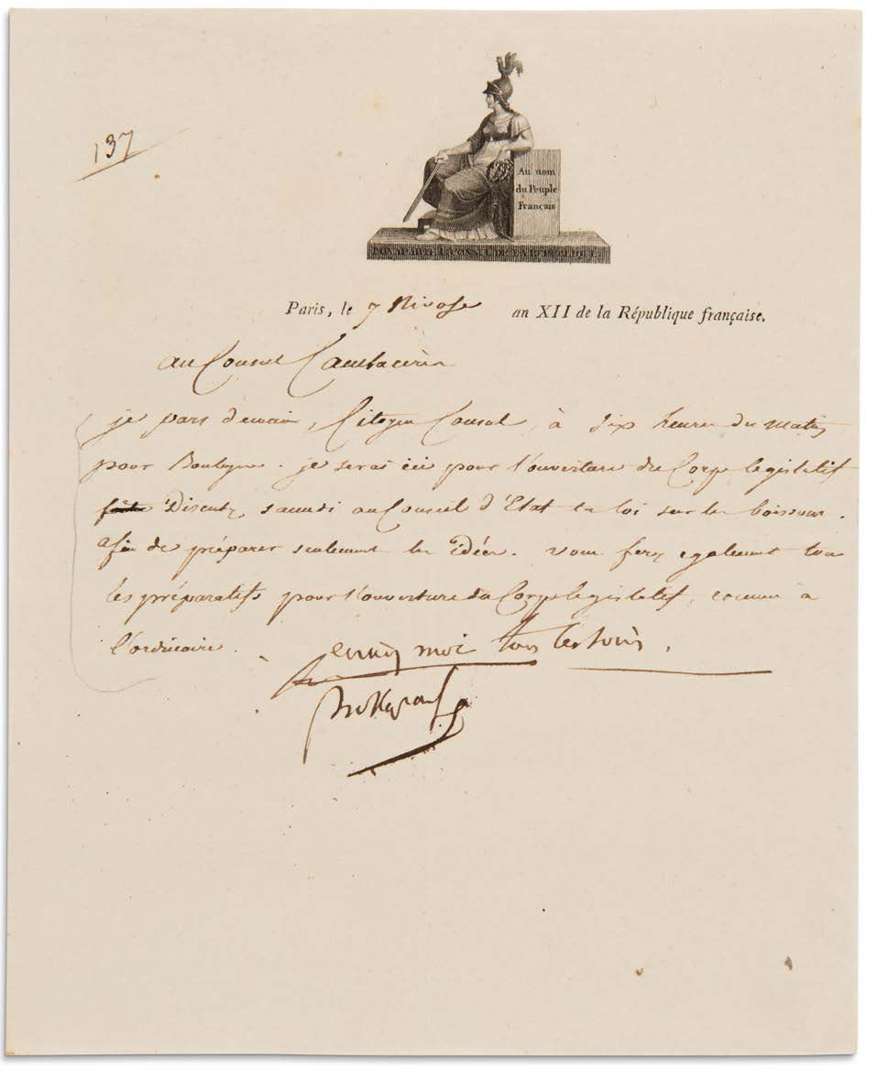 137
Au nom
du Peuple
Français
BONAPARTE 1.er CONSUL DE LA RÉPUBLIQUE
Paris, le 7 Nivose an XII de la République française.
au Consul Cambacérès
je pars demain, Citoyen Consul, à six heures du matin
pour Boulogne. je serai ici pour l'ouverture du Corps legislatif
Discutez samedi au Conseil d'Etat la loi sur les boissons.
afin de préparer seulement les idées. vous ferez egalement tous
les préparatifs pour l'ouverture du Corps legislatif, comme à
l'ordinaire. moi tous les